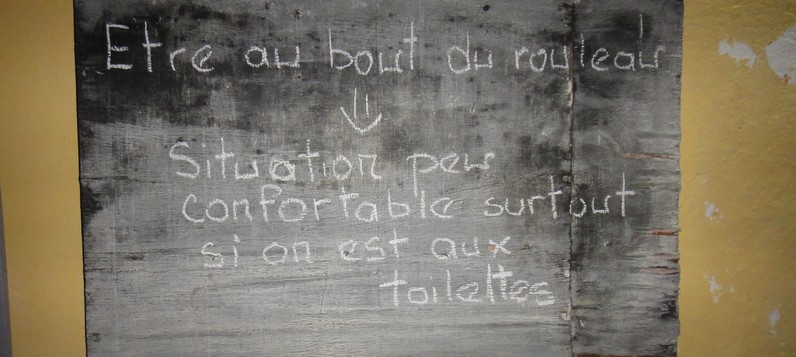 Etre au bout du rouleau
⇓
Situation peu
confortable surtout
si on est aux
toilettes